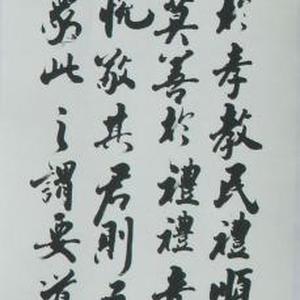 於孝教民禮順
莫善於禮禮者
悅敬其君則臣
眾此之謂要道